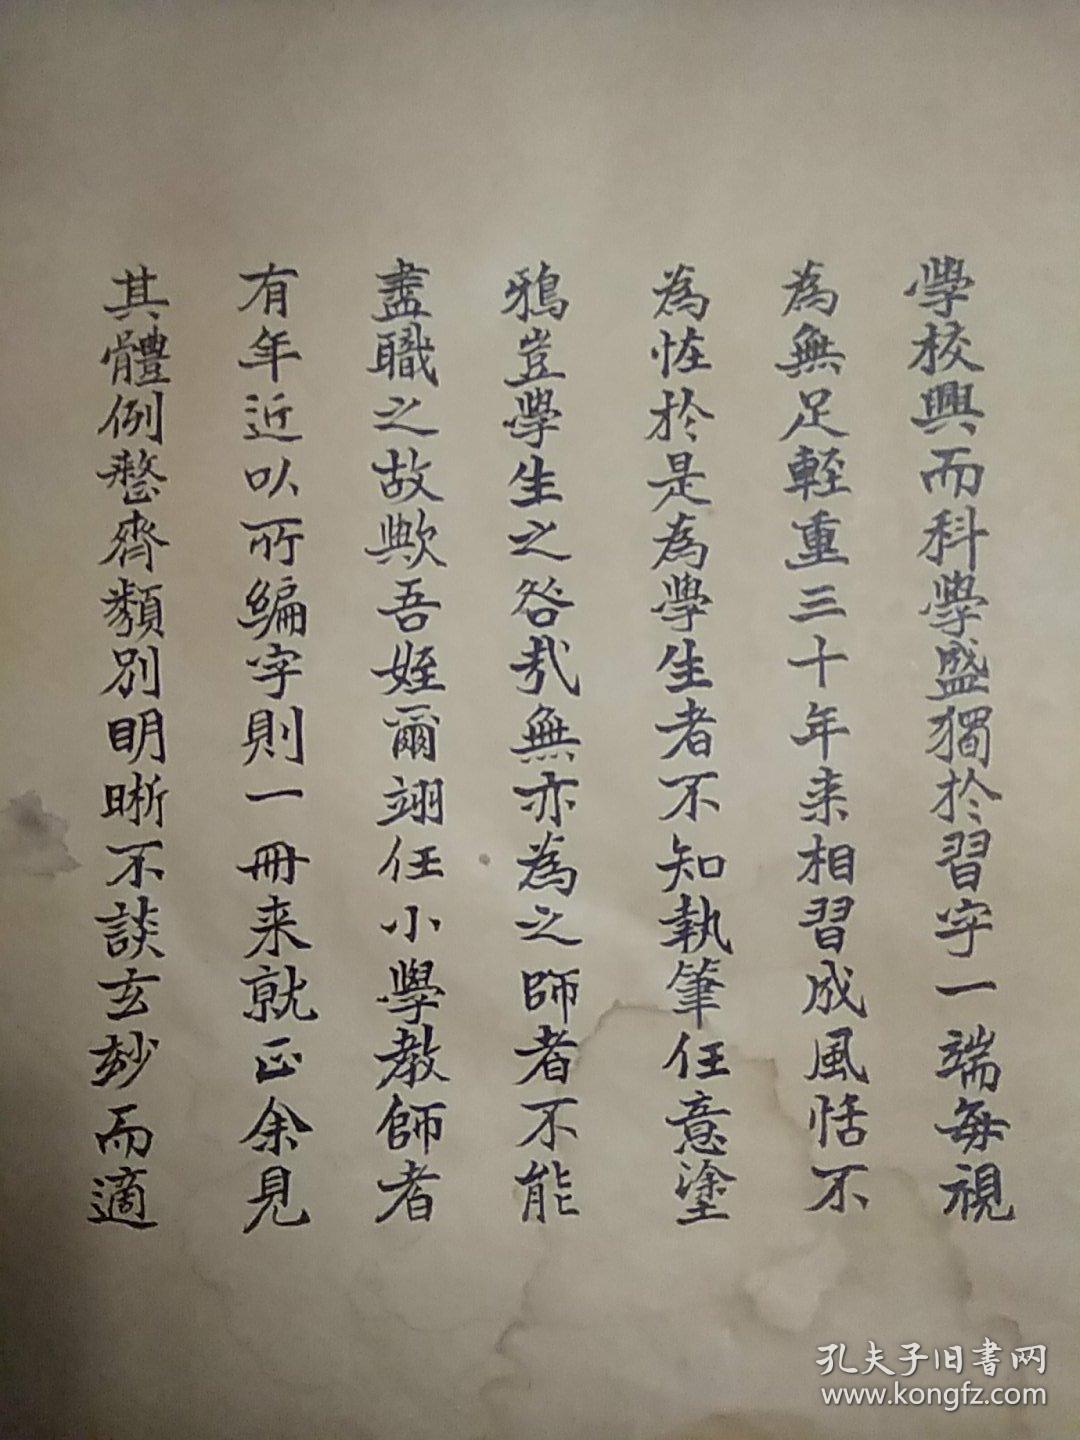 學校興而科學盛獨於習字一端每視
為無足輕重三十年来相習成風恬不
為恠於是為學生者不知執筆任意塗
鴉豈學生之咎哉無亦為之師者不能
盡職之故歟吾姪爾翊任小學教師者
有年近以所編字則一冊来就正余見
其體例整齊類別明晰不談玄妙而適
孔夫子旧書网
www.kongfz.com